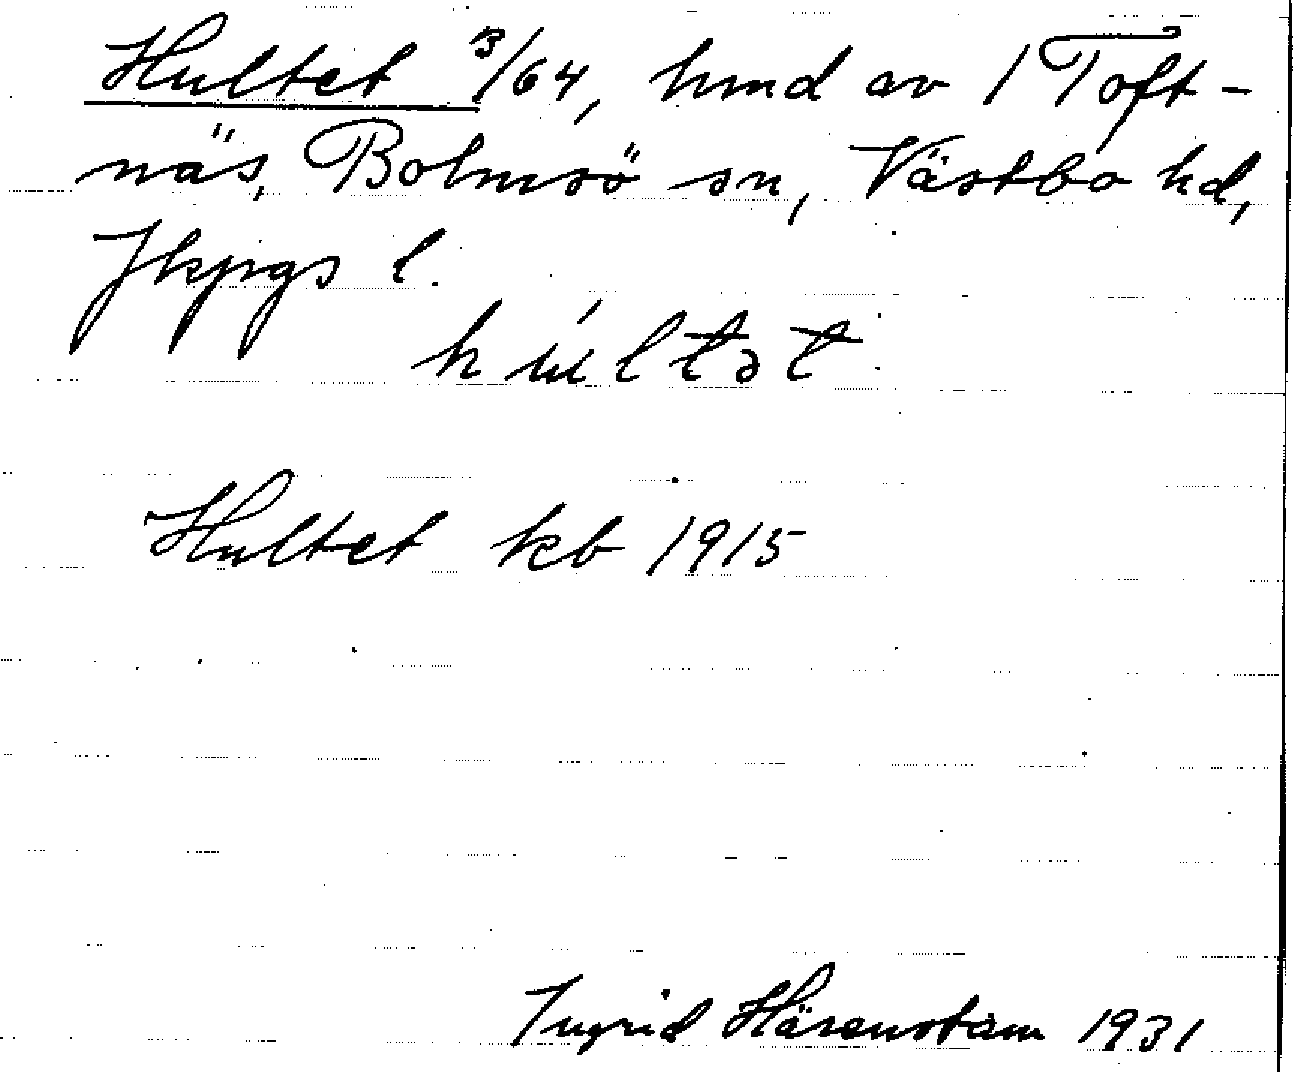 Hultet 3/64, hmd av 1 Toft-
näs, Bolmsö sn, Västbo hd,
Jkpgs l.
húltət
Hultet kb 1915
Ingrid Härenstam 1931